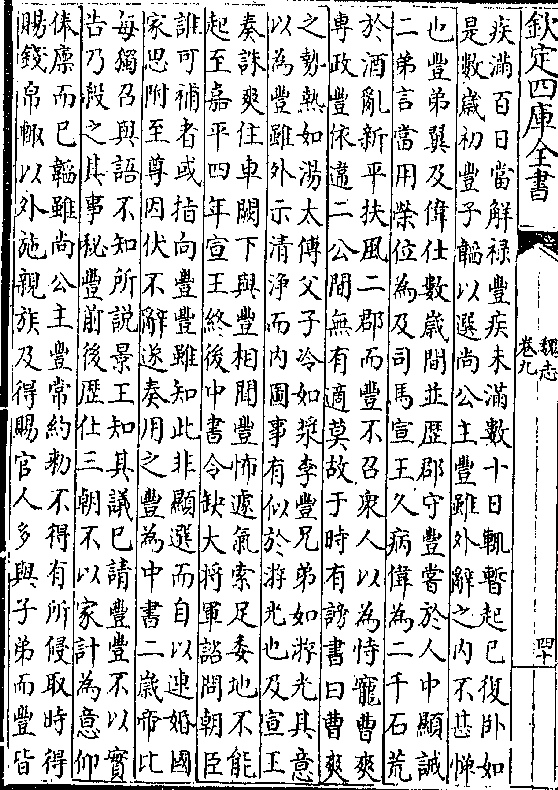 欽定四庫全書
魏志
卷九
四十
疾滿百日當解祿豐疾未滿數十日輒暫起已復卧如
是數歲初豐子韜以選尚公主豐雖外辭之内不甚憚
也豐弟翼及偉仕數歲間並歴郡守豐嘗於人中顯誡
二弟言當用榮位為及司馬宣王久病偉為二千石荒
於酒亂新平扶風二郡而豐不召衆人以為恃寵曹爽
專政豐依違二公間無有適莫故于時有謗書曰曹爽
之勢熱如湯太傅父子冷如漿李豐兄弟如游光其意
以為豐雖外示清淨而内圖事有似於游光也及宣王
奏誅爽住車闕下與豐相聞豐怖遽氣索足委地不能
起至嘉平四年宣王終後中書令缺大將軍諮問朝臣
誰可補者或指向豐豐雖知此非顯選而自以連婚國
家思附至尊因伏不辭遂奏用之豐為中書二歲帝比
每獨召與語不知所説景王知其議已請豐豐不以實
告乃殺之其事秘豐前後歴仕三朝不以家計為意仰
俸廩而已韜雖尚公主豐常約勅不得有所侵取時得
賜錢帛輒以外施親族及得賜官人多與子弟而豐皆